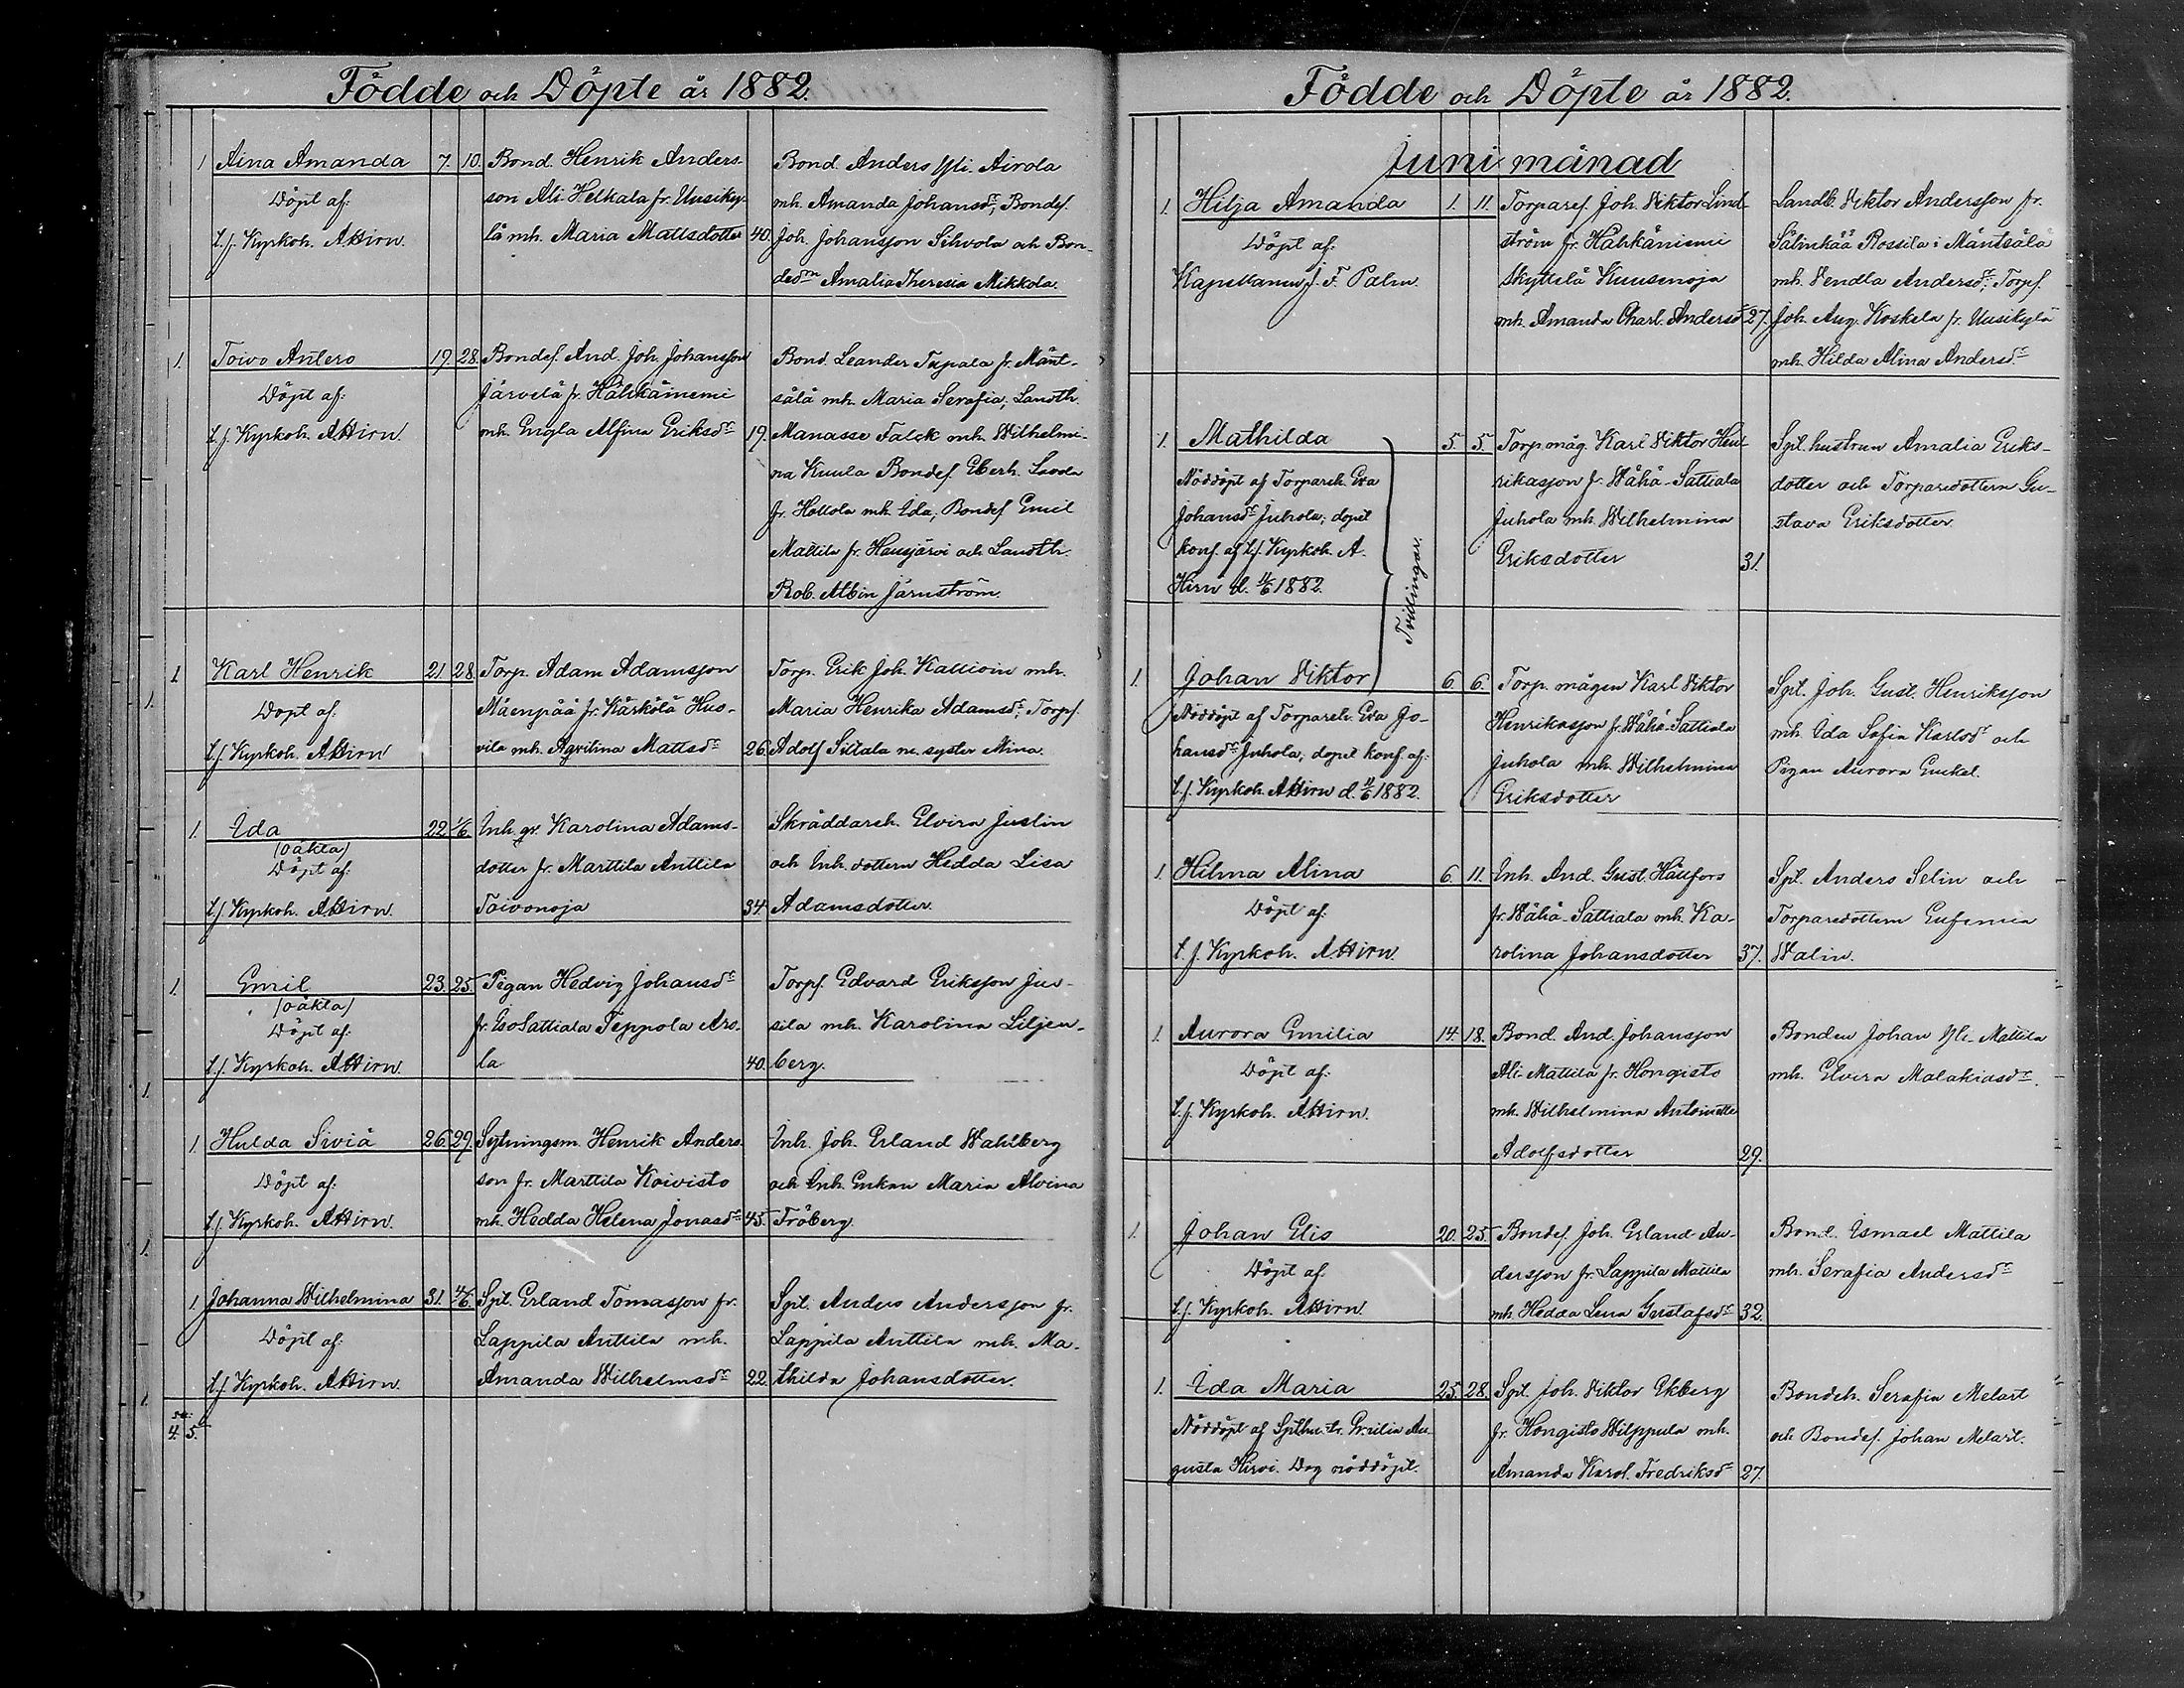 Födde och Döpte år 1882.
1 Aina Amanda 7. 10. Bond. Henrik Anders- Bond. Anders Yli-Airola
Döpt af: son Ali-Helkala fr. Uusiky- mh. Amanda Johansdr; Bondes.
t.f. Kyrkoh. A Hirn. lä mh. Maria Mattsdotter 40. Joh. Johansson Sihvola och Bon-
dedrn Amalia Theresia Mikkola.
1. Toivo Antero 19. 28. Bondes. And. Joh. Johansson Bond. Leander Tupala fr. Mänt-
Döpt af: Järvelä fr. Hähkäniemi sälä mh. Maria Serafia; Landth.
t.f. Kyrkoh. A Hirn. mh. Engla Alfina Eriksdr 19. Manasse Falck mh. Wilhelmi-
na Kuula Bondes. Eberh. Savola
fr. Hollola mh. Ida; Bondes Emil
Mattila fr. Hausjärvi och Landth.
Rob. Albin Järnström.
1 Karl Henrik 21. 28. Torp. Adam Adamsson Torp. Erik Joh. Kallioin mh.
Döpt af: Mäenpää fr. Kärkölä Huo- Maria Henrika Adamsdr; Torps.
t.f. Kyrkoh. A Hirn vila mh. Agvilina Mattsdr 26. Adolf Siltala m. syster Mina.
1. Ida 22 1/6 Inh. qv. Karolina Adams- Skräddareh. Elvira Juslin
(oäkta)
Döpt af: dotter fr. Marttila Anttila och Inh. dottern Hedda Lisa
t.f. Kyrkoh. A Hirn. Toivonoja 34. Adamsdotter.
1. Emil 23. 25. Pigan Hedvig Johansdr Torps. Edvard Eriksson Jus-
(oäkta)
Döpt af: fr. IsoSattiala Teppola Aro- sila mh. Karolina Liljen-
t.f. Kyrkoh. A Hirn. la 40. berg.
1. Hulda Siviä 26. 29. Sytningsm. Henrik Anders- Inh. Joh. Erland Wahlberg
Döpt af: son fr. Marttila Koivisto och Inh. Enkan Maria Alvina
t.f. Kyrkoh. A Hirn. mh. Hedda Helena Jonasdr 45. Fröberg.
1. Johanna Wilhelmina 31. 4/6. Spl. Erland Tomasson fr. Spl. Anders Andersson fr.
Döpt af: Lappila Anttila mh. Lappila Anttila mh. Ma-
t.f. Kyrkoh. A Hirn. Amanda Wilhelmsdr 22. thilda Johansdotter.
4. 5.
Födde och Döpte år 1882.
Juni månad
1. Hilja Amanda 1. 11. Torpares. Joh. Viktor Lind- Landb. Viktor Andersson fr.
Döpt af: ström fr. Hähkäniemi Sälinkää Rossila i Mäntsälä
Kapellanen J. F. Palm. Skyttelä Kuusenoja mh. Vendla Andersdr; Torps.
mh. Amanda Charl. Andersdr 27. Joh. Aug. Koskela fr. Uusikylä
mh. Hilda Alina Andersdr
1. Mathilda 5. 5. Torp. måg. Karl Viktor Hen- Spl. hustrun Amalia Eriks-
Nöddöpt af Torpareh. Eva rikasson fr. Wähä-Sattiala dotter och Torparedottern Gu-
Johansdr Juhola; dopet Juhola mh. Wilhelmina stava Eriksdotter.
konf. af t.f. Kyrkoh. A. Eriksdotter 31.
Hirn d. 11/6 1882.
Tvillingar.
1. Johan Viktor 6. 6. Torp. mågen Karl Viktor Spl. Joh. Gust. Henriksson
Nöddöpt af Torpareh. Eva Jo- Henrikasson fr. Wähä-Sattiala mh. Ida Sofia Karlsdr och
hansdr Juhola; dopet konf. af: Juhola mh. Wilhelmina Pigan Aurora Enckel.
t.f. Kyrkoh. A Hirn d. 11/6 1882. Eriksdotter
1. Hilma Alina 6. 11. Inh. And. Gust. Hällfors Spl. Anders Selin och
Döpt af: fr. Wähä-Sattiala mh. Ka- Torparedottern Eufemia
t.f. Kyrkoh. A Hirn. rolina Johansdotter 37. Walin.
1. Aurora Emilia 14. 18. Bond. And. Johansson Bonden Johan Yli-Mattila
Döpt af: Ali-Mattila fr. Hongisto mh. Elvira Malakiasdr.
t.f. Kyrkoh. A Hirn. mh. Wilhelmina Antoinette
Adolfsdotter 29.
1. Johan Elis 20. 25. Bondes. Joh. Erland An- Bond. Ismael Mattila
Döpt af: dersson fr. Lappila Mattila mh. Serafia Andersdr
t.f. Kyrkoh. A Hirn. mh. Hedda Lena Gustafsdr 32.
1. Ida Maria 25. 28. Spl. Joh. Viktor Ekberg Bondeh. Serafia Melart
Nöddöpt af Au- fr. Hongisto Wilppula mh. och Bondes. Johan Melart.
gusta Hirvi. Dog nöddöpt. Amanda Karol. Fredriksdr 27.